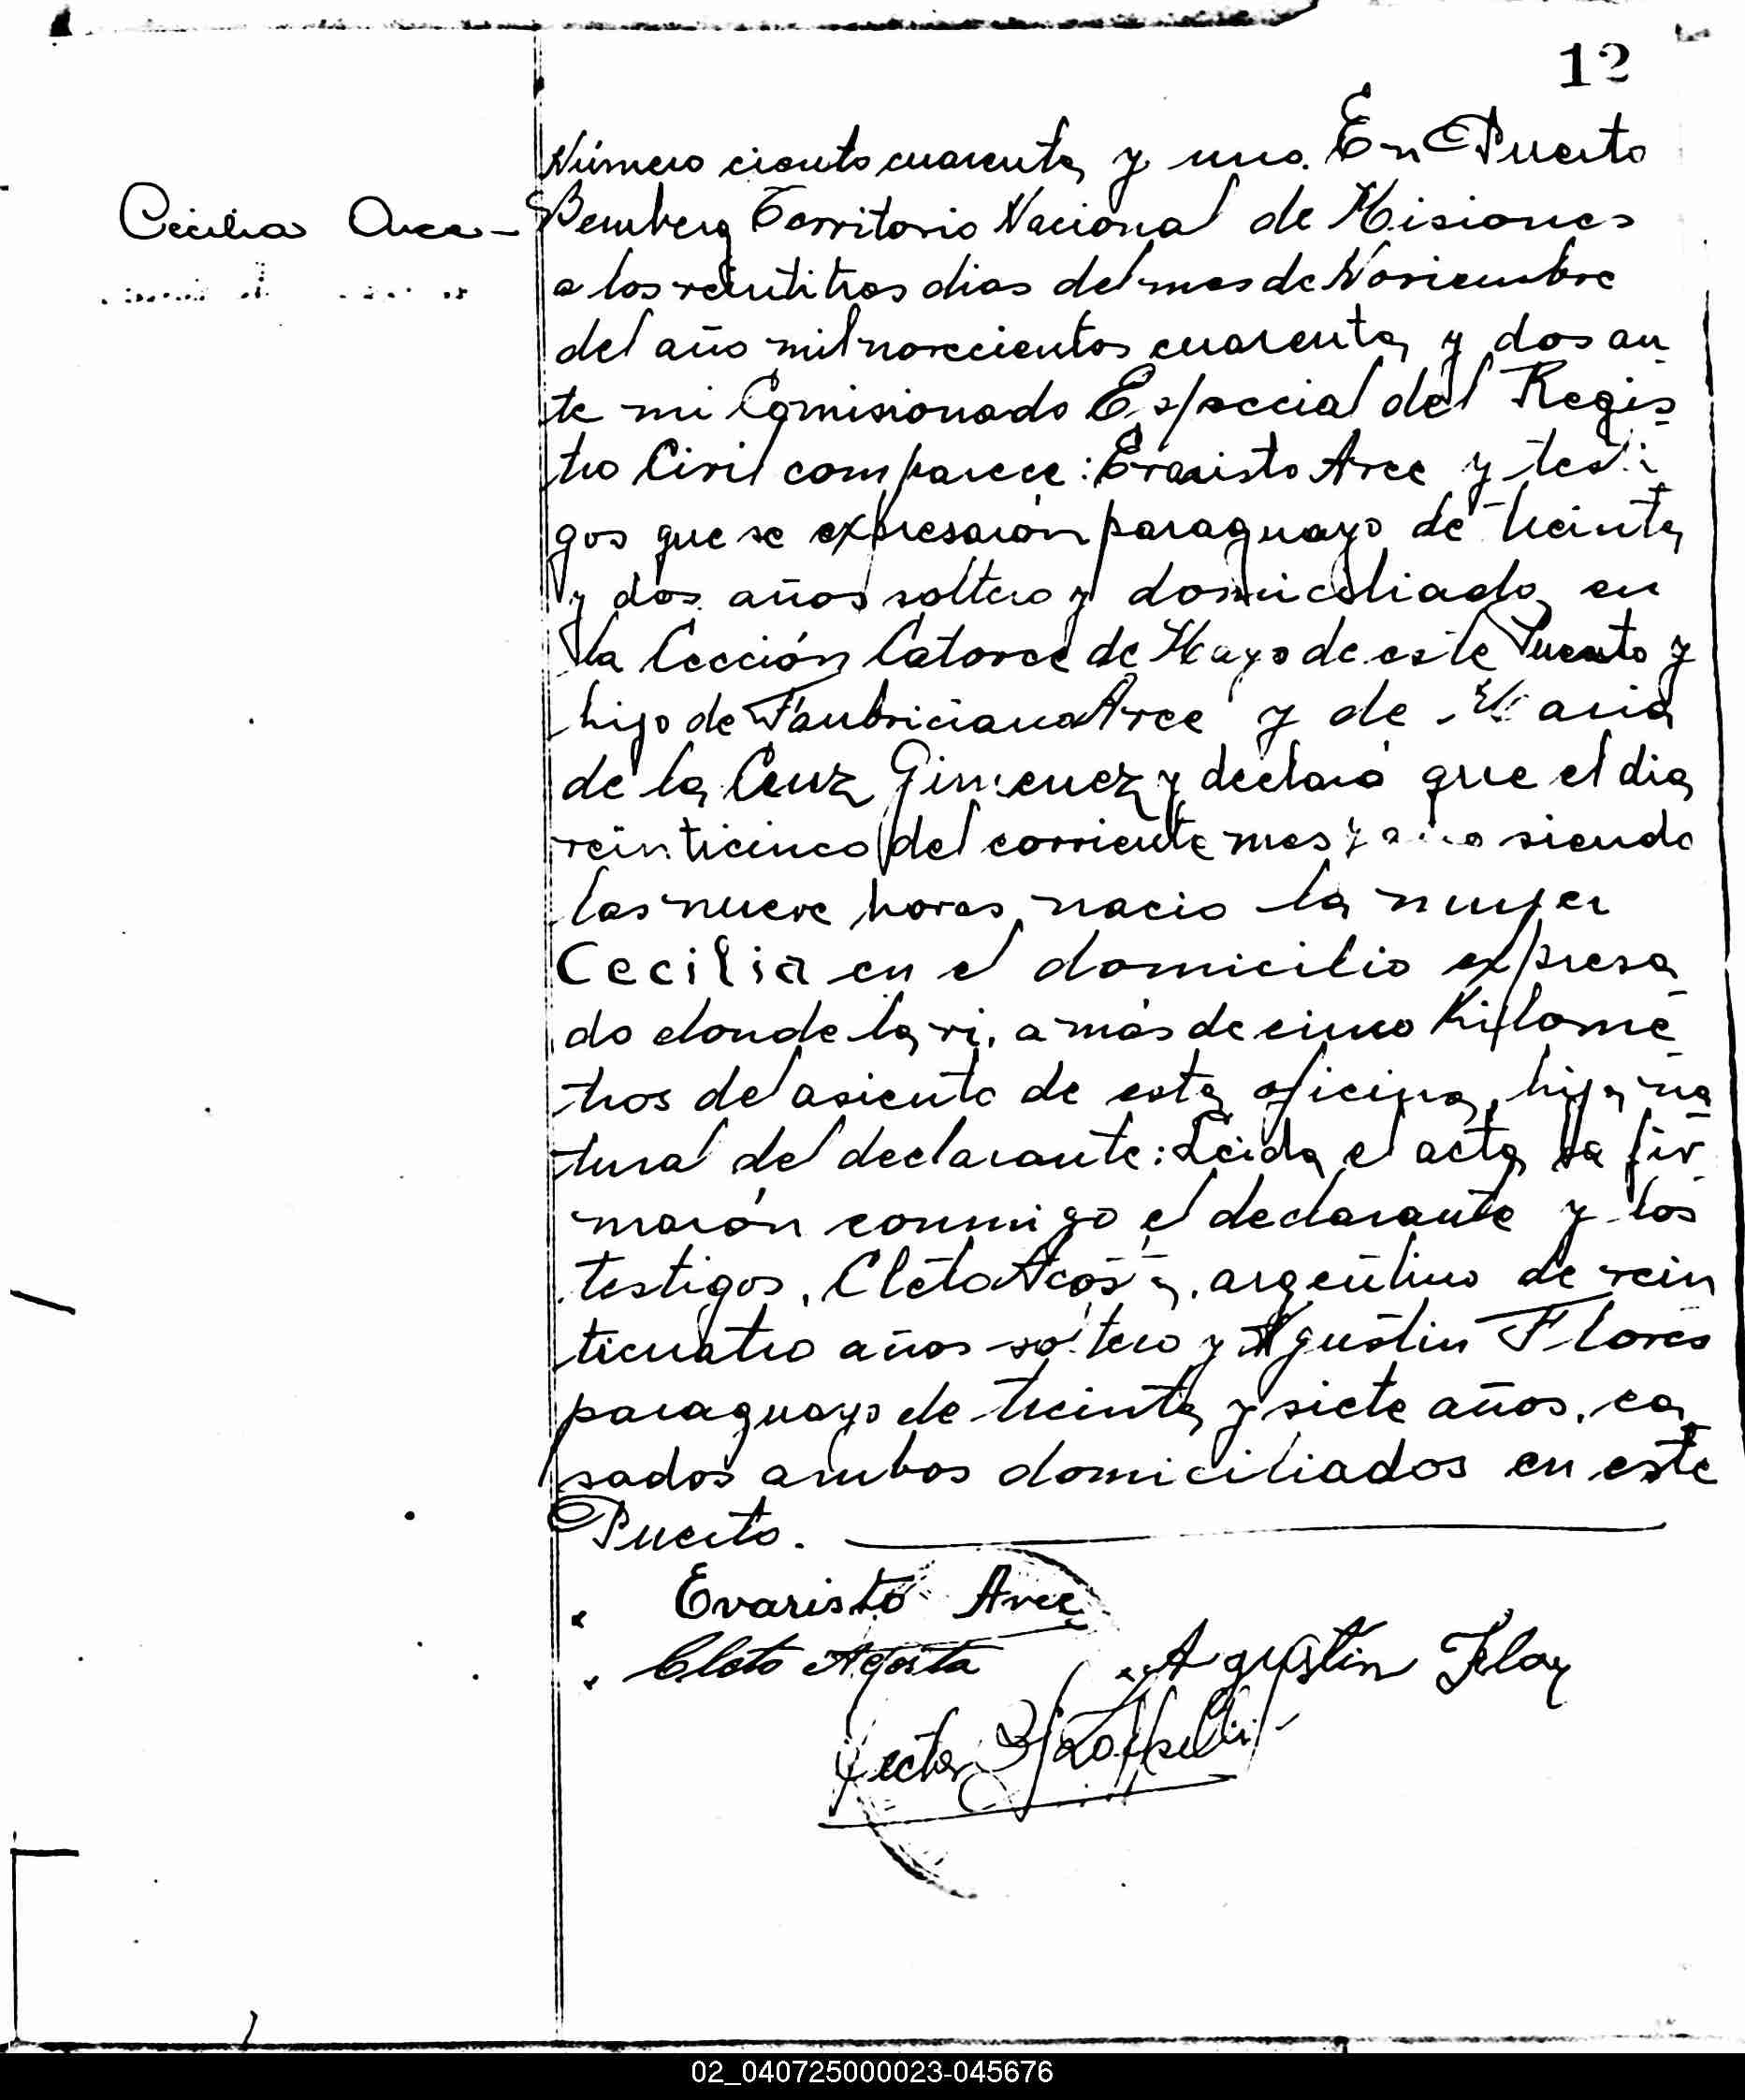 12
Número ciento cuarenta y uno. En Puerto
Cecilia Arce - Bemberg Territorio Nacional de Misiones
a los veintitres dias del mes de Noviembre
del año mil novecientos cuarenta y dos an
te mi Comisionado Especial del Regis
tro Civil comparece: Evaristo Arce y testi
gos que se expresarón paraguayo de treinta
y dos años soltero y domiciliado en
la Cección Catorce de Mayo de este Puerto y
hijo de Faubriciana Arce y de Maria
de la Cruz Gimenez y declaró que el dia
veinticinco del corriente mes y año siendo
las nueve horas nacio la mujer
Cecilia en el domicilio expresa
do donde la vi, a más de cinco Kilome
tros del asiento de esta oficina, hija na
tural del declarante: Leida el acta la fir
marón conmigo el declarante y los
testigos, Cleto Acosta, argentino de vein
ticuatro años soltero y Agustin Flores
paraguayo de treinta y siete años, ca
sados ambos domiciliados en este
Puerto.
Evaristo Arce
Cleto Agosta Agustin Flor
Hector
02_040725000023-045676